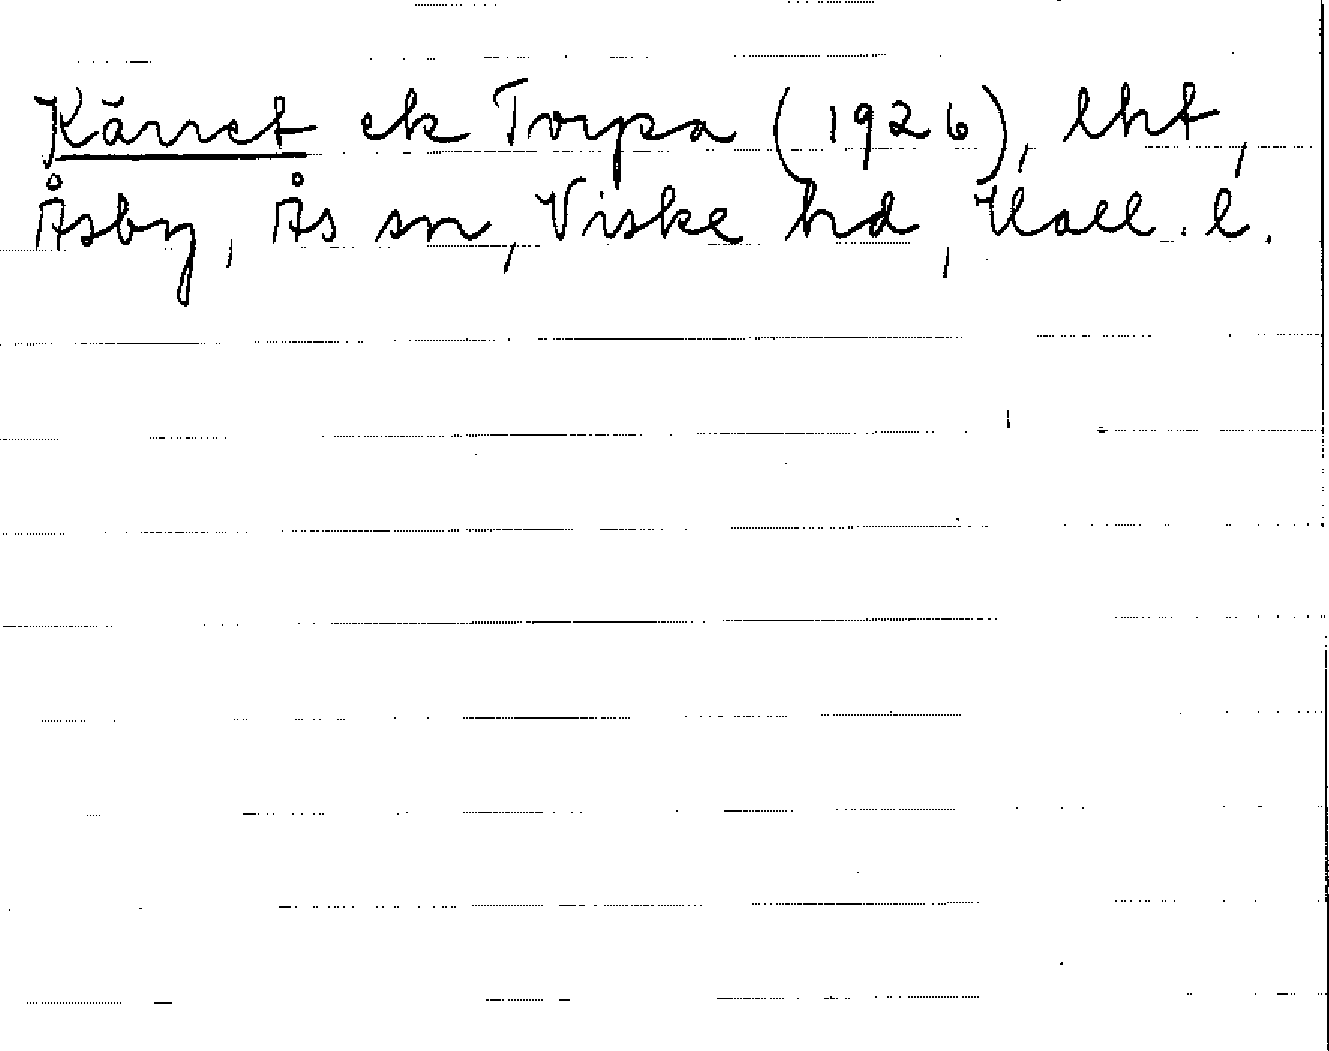 Kärret ek Torpa (1926), lht,
Åsby, Ås sn, Viske hd, Hall. l.